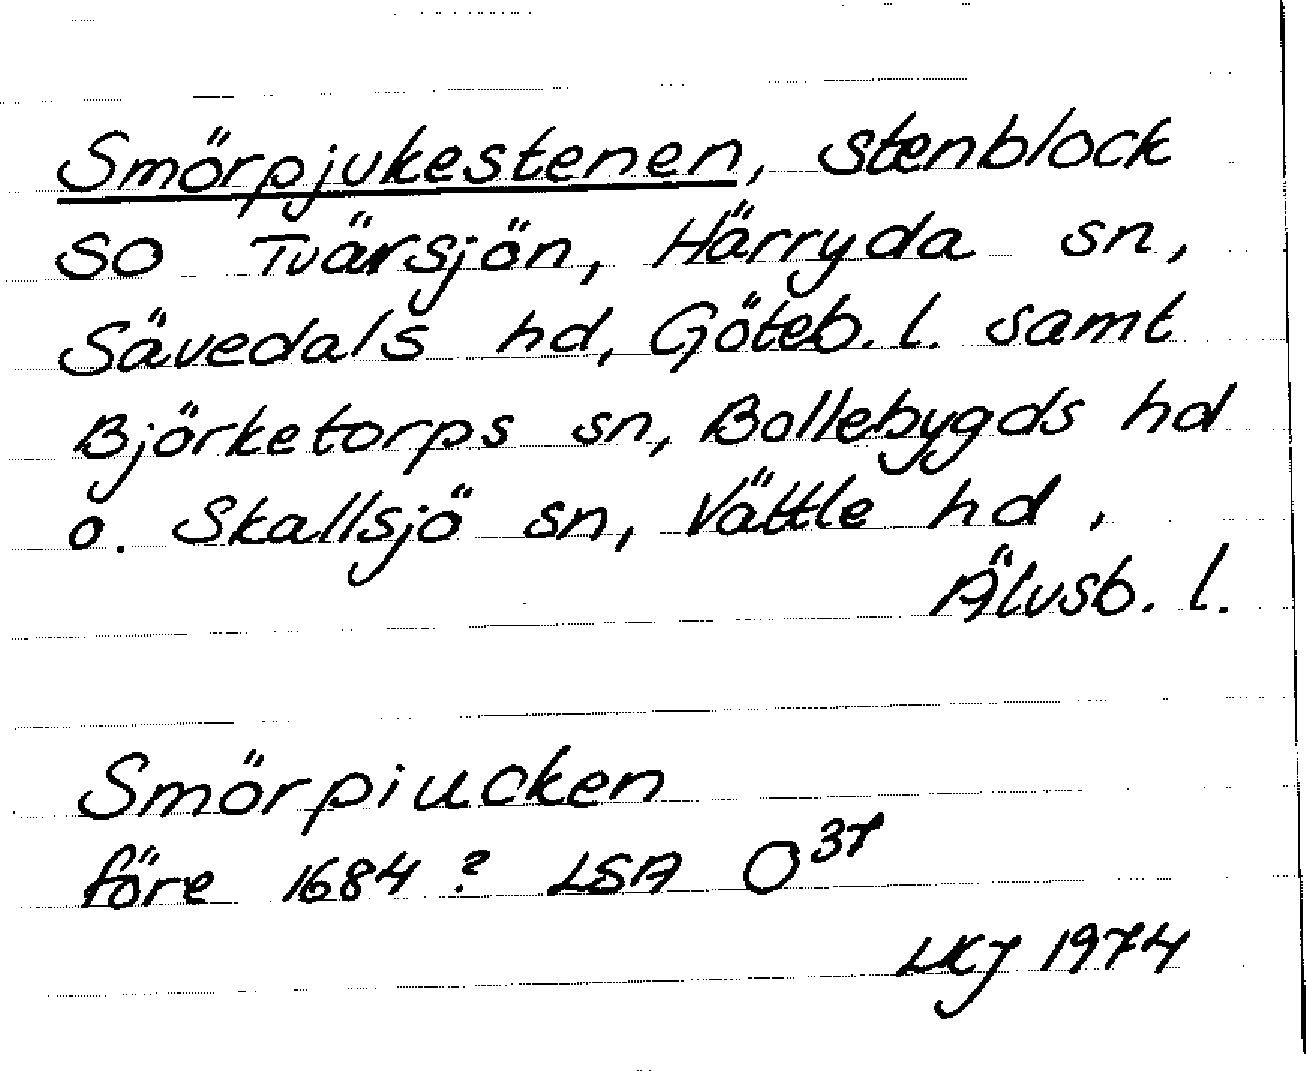 Smörpjukestenen, stenblock
SO Tvärsjön, Härryda sn,
Sävedals hd, Göteb. l. samt
Björketorps sn, Bollebygds hd
o. Skallsjö sn, Vättle hd,
Älvsb. l.
Smörpiucken
före 1684? LSA O37
LKJ 1974